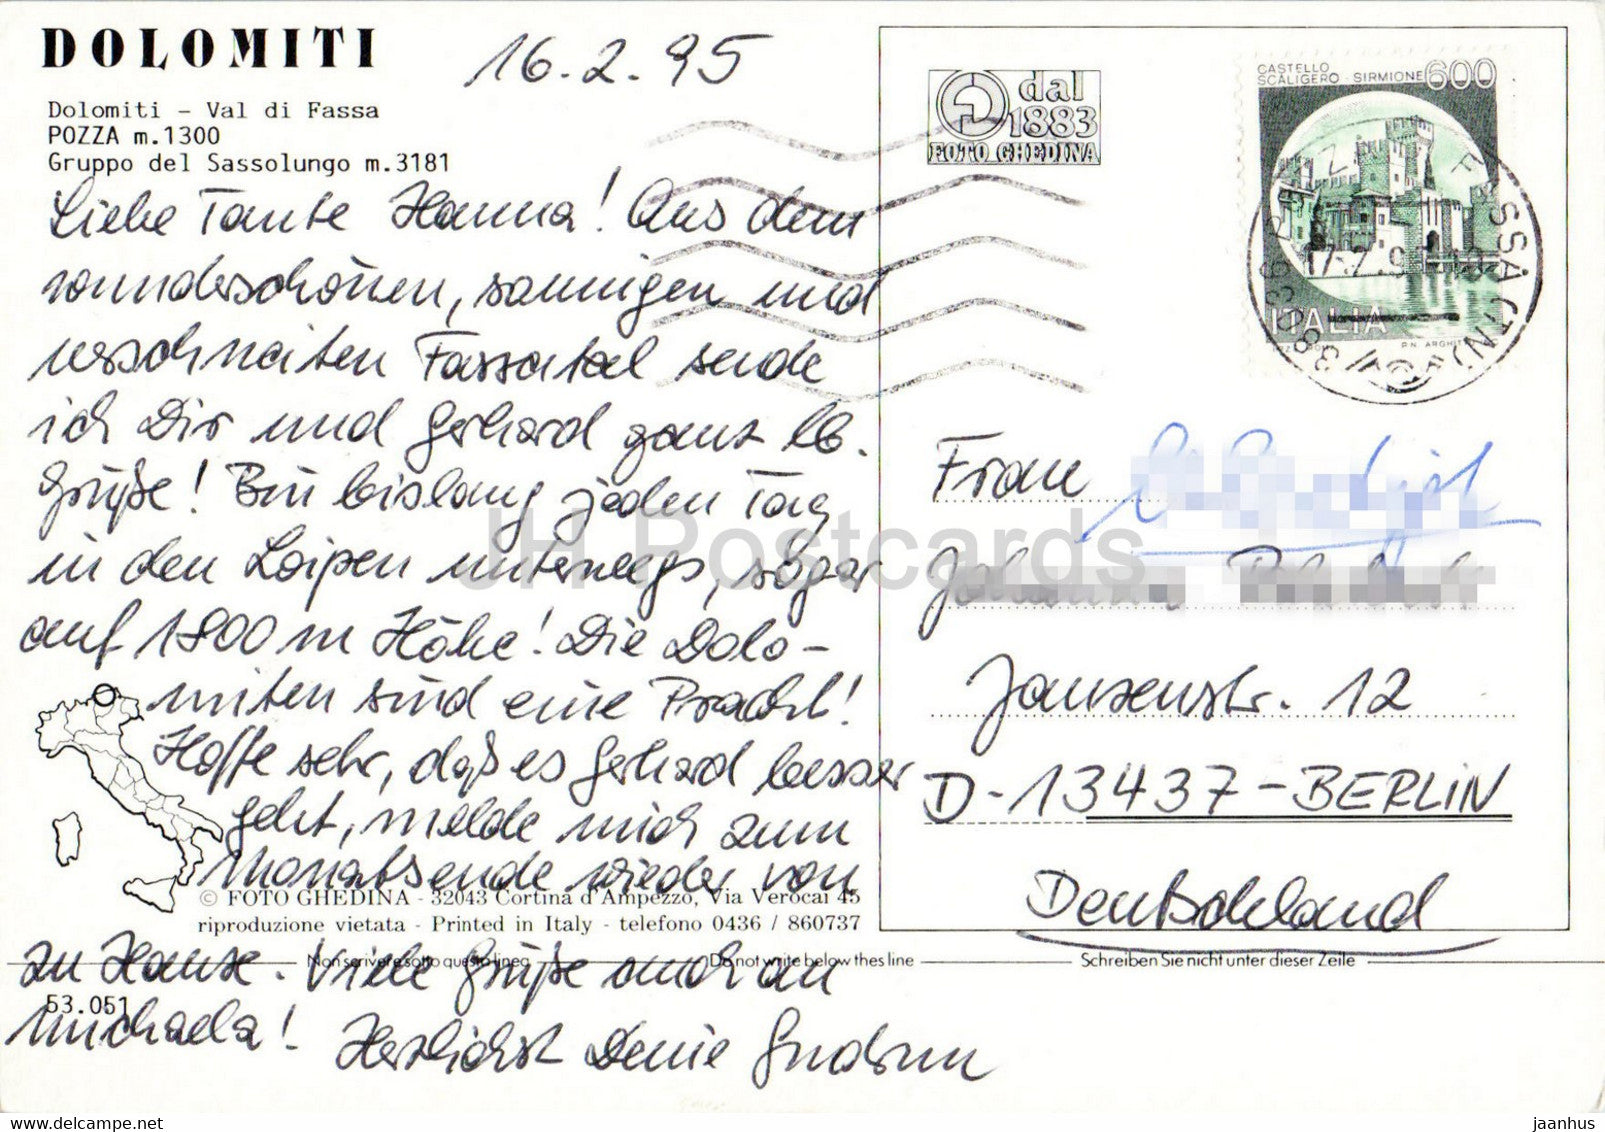 DOLOMITI
16.2.95
Dolomiti - Val di Fassa
POZZA m.1300
Gruppo del Sassolungo m.3181
Liebe Tante Hanna! Aus dem
wunderschönen, sonnigen und
verschneiten Fassatal sende
ich Dir und Gerhard ganz lb.
Grüße! Bin bislang jeden Tag
in den Loipen unterwegs, sogar
auf 1800 m Höhe! Die Dolo-
miten sind eine Pracht!
Hoffe sehr, daß es Gerhard besser
geht, melde mich zum
Monatsende wieder von
zu Hause. Viele Grüße auch an
Michaela! Herzlichst Deine Gudrun
© FOTO GHEDINA - 32043 Cortina d'Ampezzo, Via Verocai 45
riproduzione vietata - Printed in Italy - telefono 0436 / 860737
Non scrivere sotto questa linea
Do not write below thes line
Schreiben Sie nicht unter dieser Zeile
53.051
dal
1883
FOTO GHEDINA
CASTELLO
SCALIGERO - SIRMIONE 600
ITALIA
Frau
Jansenstr. 12
D-13437-BERLIN
Deutschland
JH Postcards
www.delcampe.net
jaanhus